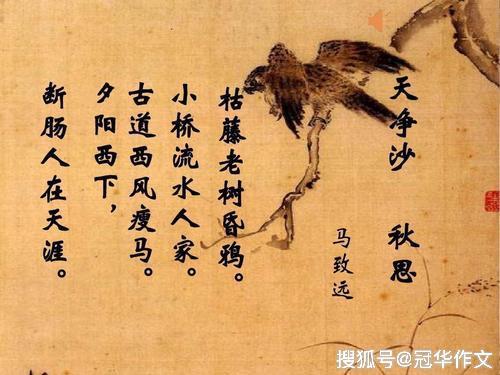 天争沙 秋思
马致远
枯藤老树昏鸦。
小桥流水人家。
古道西风瘦马。
夕阳西下，
断肠人在天涯。
搜狐号@冠华作文